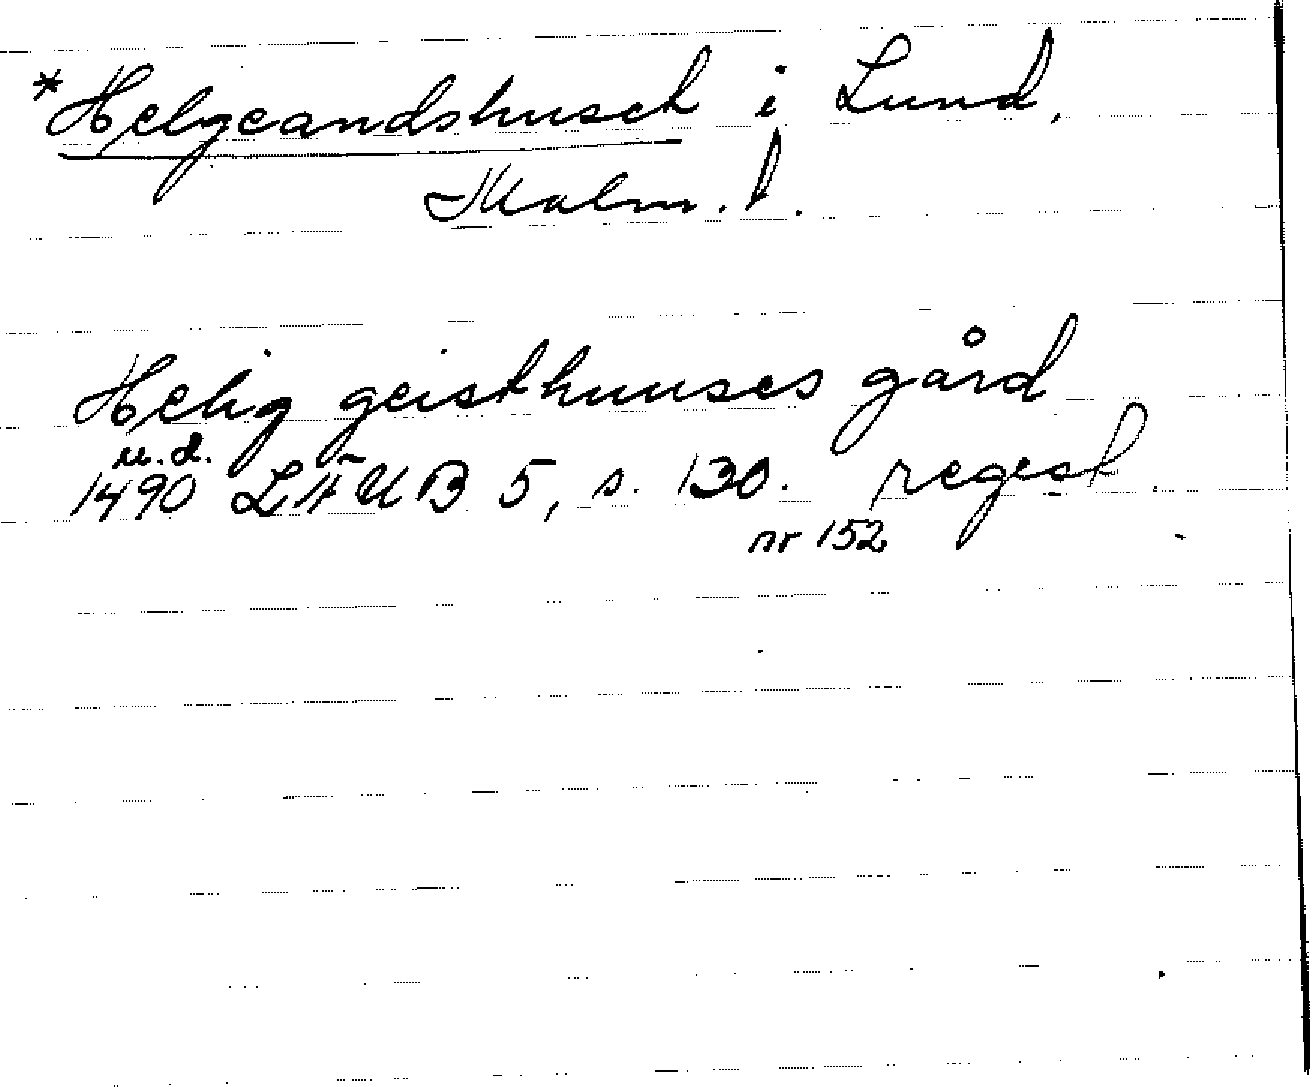 *Helgeandshuset i Lund,
Malm. l.
Helig geisthuuses gård
u.d.
1490 LÄUB 5, s. 130. regest
nr 152